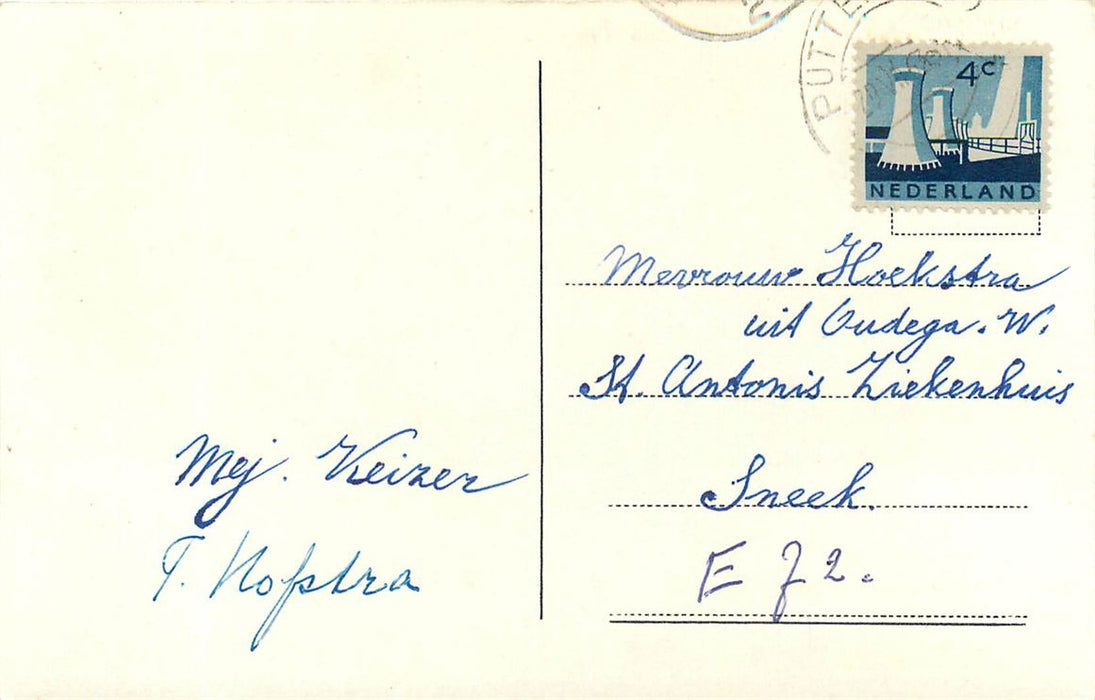 PUTTE
4c
NEDERLAND
Mevrouw Hoekstra
uit Oudega. W.
St. Antonis Ziekenhuis
Sneek.
E 72.
Mej. Keizer
T. Hofstra